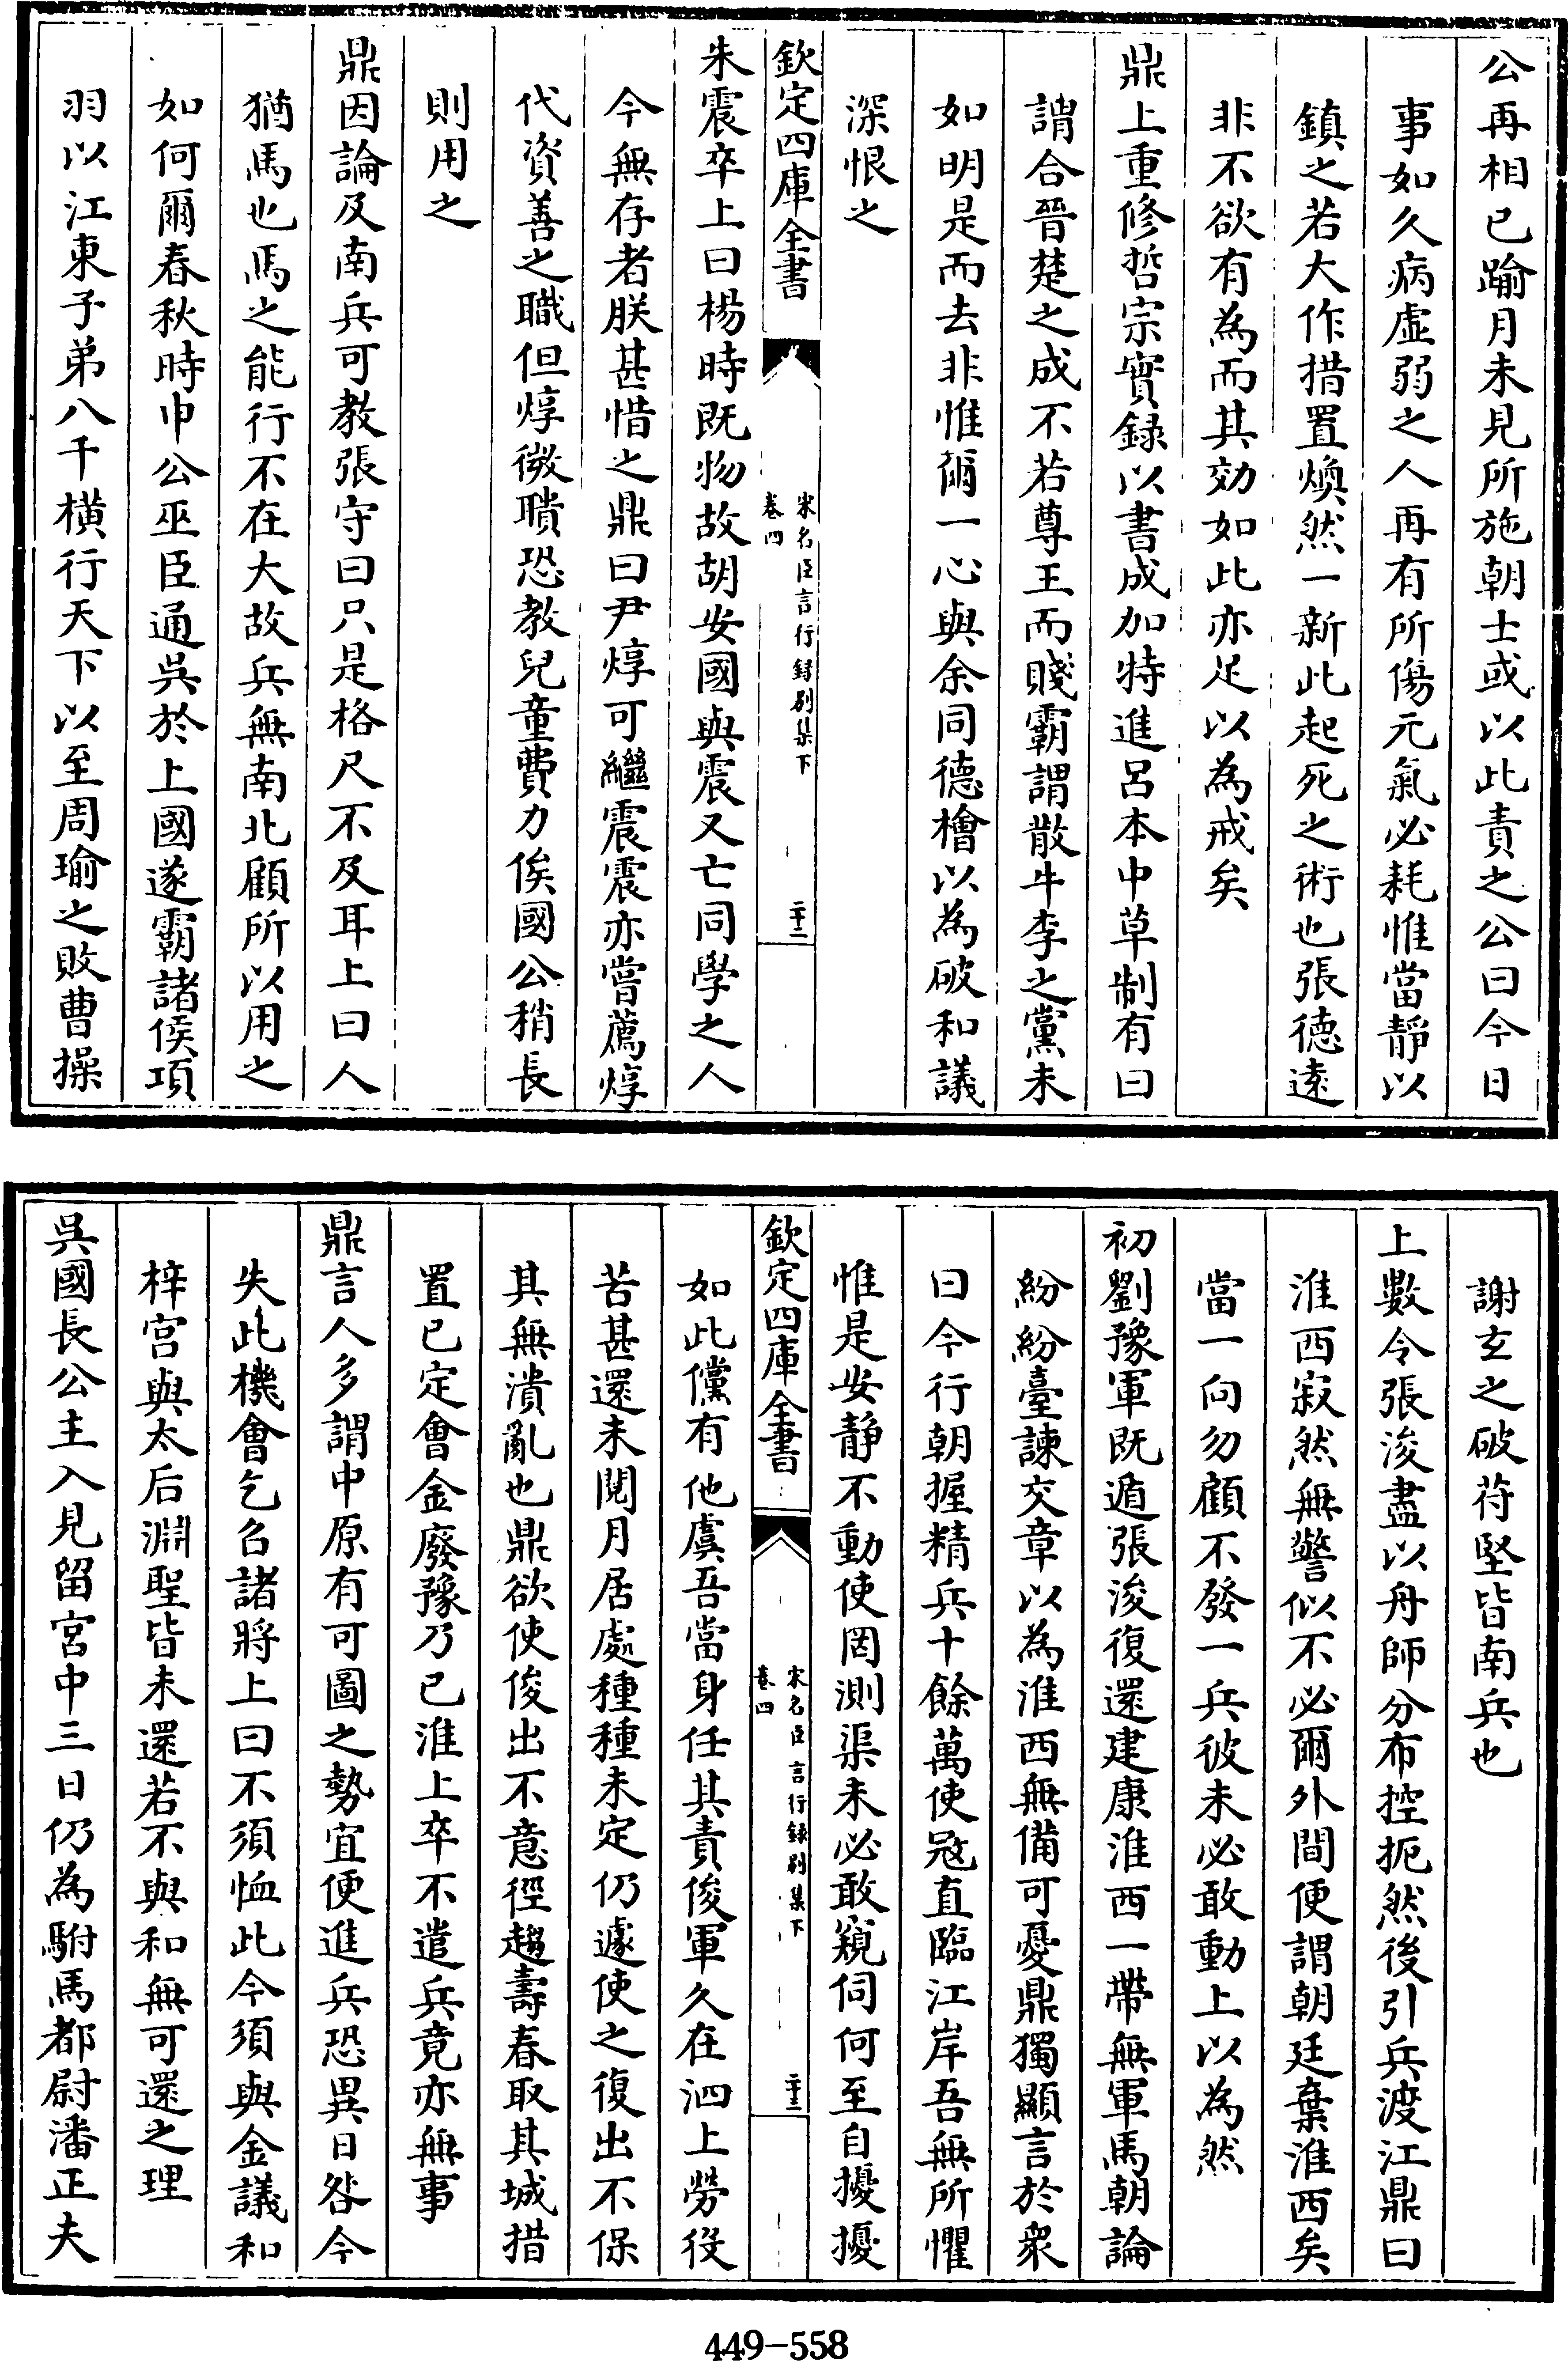 公再相已踰月未見所施朝士或以此責之公曰今日
事如久病虛弱之人再有所傷元氣必耗惟當靜以
鎮之若大作措置煥然一新此起死之術也張德遠
非不欲有為而其効如此亦足以為戒矣
鼎上重修哲宗實録以書成加特進呂本中草制有曰
謂合晉楚之成不若尊王而賤霸謂散牛李之黨未
如明是而去非惟爾一心與余同德檜以為破和議
深恨之
欽定四庫全書
宋名臣言行録别集下
卷四
二十二
朱震卒上曰楊時既物故胡安國與震又亡同學之人
今無存者朕甚惜之鼎曰尹焞可繼震震亦嘗薦焞
代資善之職但焞微聵恐教兒童費力俟國公稍長
則用之
鼎因論及南兵可教張守曰只是格尺不及耳上曰人
猶馬也馬之能行不在大故兵無南北顧所以用之
如何爾春秋時申公巫臣通吳於上國遂霸諸侯項
羽以江東子弟八千橫行天下以至周瑜之敗曹操
謝玄之破苻堅皆南兵也
上數令張浚盡以舟師分布控扼然後引兵渡江鼎曰
淮西寂然無警似不必爾外間便謂朝廷棄淮西矣
當一向勿顧不發一兵彼未必敢動上以為然
初劉豫軍既遁張浚復還建康淮西一帶無軍馬朝論
紛紛臺諫交章以為淮西無備可憂鼎獨顯言於衆
曰今行朝握精兵十餘萬使冦直臨江岸吾無所懼
惟是安靜不動使罔測渠未必敢窺伺何至自擾擾
欽定四庫全書
宋名臣言行録别集下
卷四
二十三
如此儻有他虞吾當身任其責俊軍久在泗上勞役
苦甚還未閱月居處種種未定仍遽使之復出不保
其無潰亂也鼎欲使俊出不意徑趨壽春取其城措
置已定會金廢豫乃已淮上卒不遣兵竟亦無事
鼎言人多謂中原有可圖之勢宜便進兵恐異日咎今
失此機會乞召諸將上曰不須恤此今須與金議和
梓宮與太后淵聖皆未還若不與和無可還之理
吳國長公主入見留宮中三日仍為駙馬都尉潘正夫
449-558